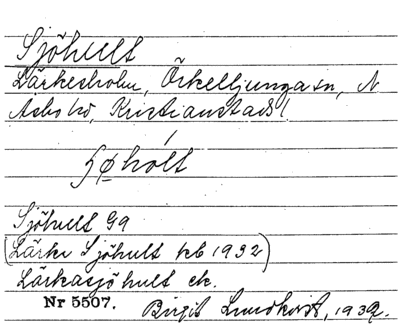 Sjöhult
Lärkesholm, Örkelljunga sn, N
Åsbo hd, Kristianstads l.
Sjöhult G9
(Lärke Sjöhult kb 1932)
Lärkasjö hult ek.
Nr 5507. Birgit Lundkvist, 1932.